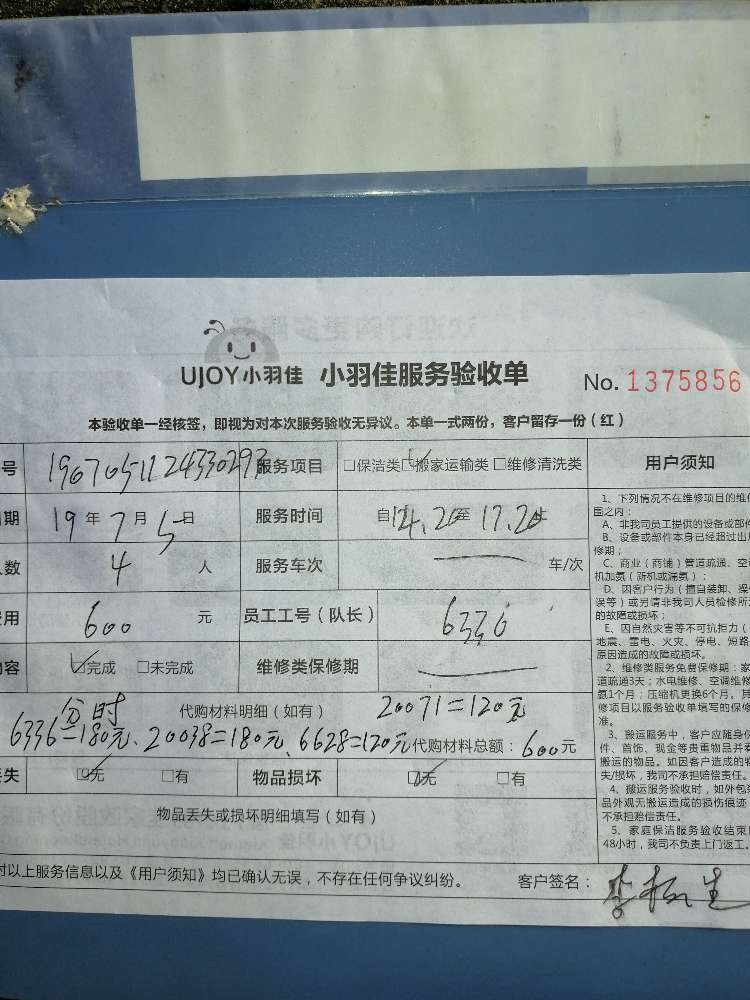 UJOY小羽佳 小羽佳服务验收单 No. 1375856
本验收单一经核签，即视为对本次服务验收无异议。本单一式两份，客户留存一份（红）
号 1967051124330293 服务项目 □保洁类 ☑搬家运输类 □维修清洗类 用户须知
期 19年7月5日 服务时间 自14.20至17.20
数 4 人 服务车次 车/次
用 600 元 员工工号（队长） 6336
内容 ☑完成 □未完成 维修类保修期
代购材料明细（如有） 20071=120元
6336=180元、20038=180元、6628=120元 代购材料总额：600元
丢失 ☑无 □有 物品损坏 ☑无 □有
物品丢失或损坏明细填写（如有）
对以上服务信息以及《用户须知》均已确认无误，不存在任何争议纠纷。 客户签名：
1、下列情况不在维修项目的维
围之内：
A、非我司员工提供的设备或部件
B、设备或部件本身已经超过出
修期；
C、商业（商铺）管道疏通、空
机加氨（新机或漏氨）；
D、因客户行为（擅自装卸、操
误等）或另请非我司人员检修所
的故障或损坏；
E、因自然灾害等不可抗力（
地震、雷电、火灾、停电、短路
原因造成的故障或损坏。
2、维修类服务免费保修期：家
道疏通3天；水电维修、空调维修
氨1个月；压缩机更换6个月。其
修项目以服务验收单填写的保修
准。
3、搬运服务中，客户应随身
件、首饰、现金等贵重物品并看
搬运的物品。如因客户造成的物
失/损坏，我司不承担赔偿责任。
4、搬运服务验收时，如外包装
品外观无搬运造成的损伤痕迹
不承担赔偿责任。
5、家庭保洁服务验收结束
48小时，我司不负责上门返工。